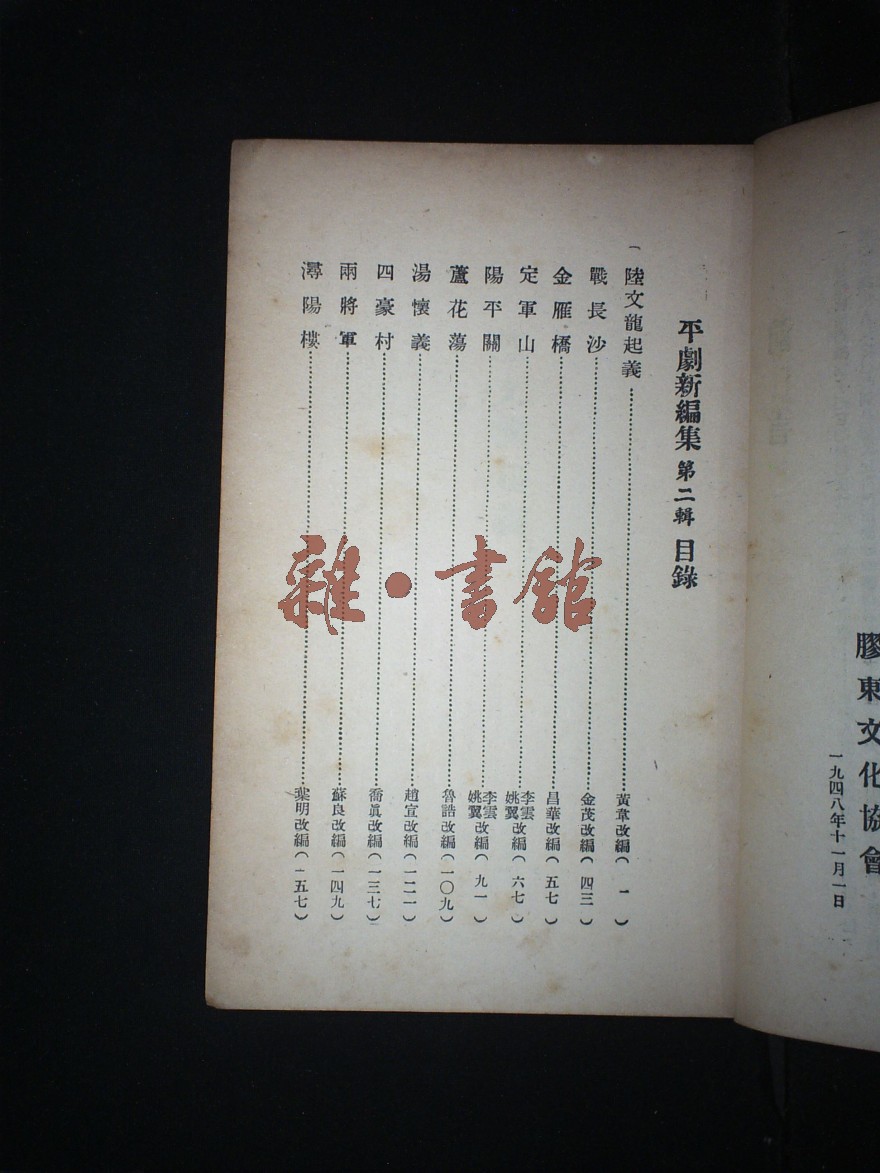 膠東文化協會
一九四八年十一月一日
平劇新編集 第二輯 目錄
陸文龍起義……黃章改編(一)
戰長沙……金茂改編(四三)
金雁橋……昌華改編(五七)
定軍山……李雲 姚翼改編(六七)
陽平關……李雲 姚翼改編(九一)
蘆花蕩……魯誥改編(一〇九)
湯懷義……趙宣改編(一二一)
四豪村……喬眞改編(一三七)
兩將軍……蘇良改編(一四九)
潯陽樓……葉明改編(一五七)
雜·書館